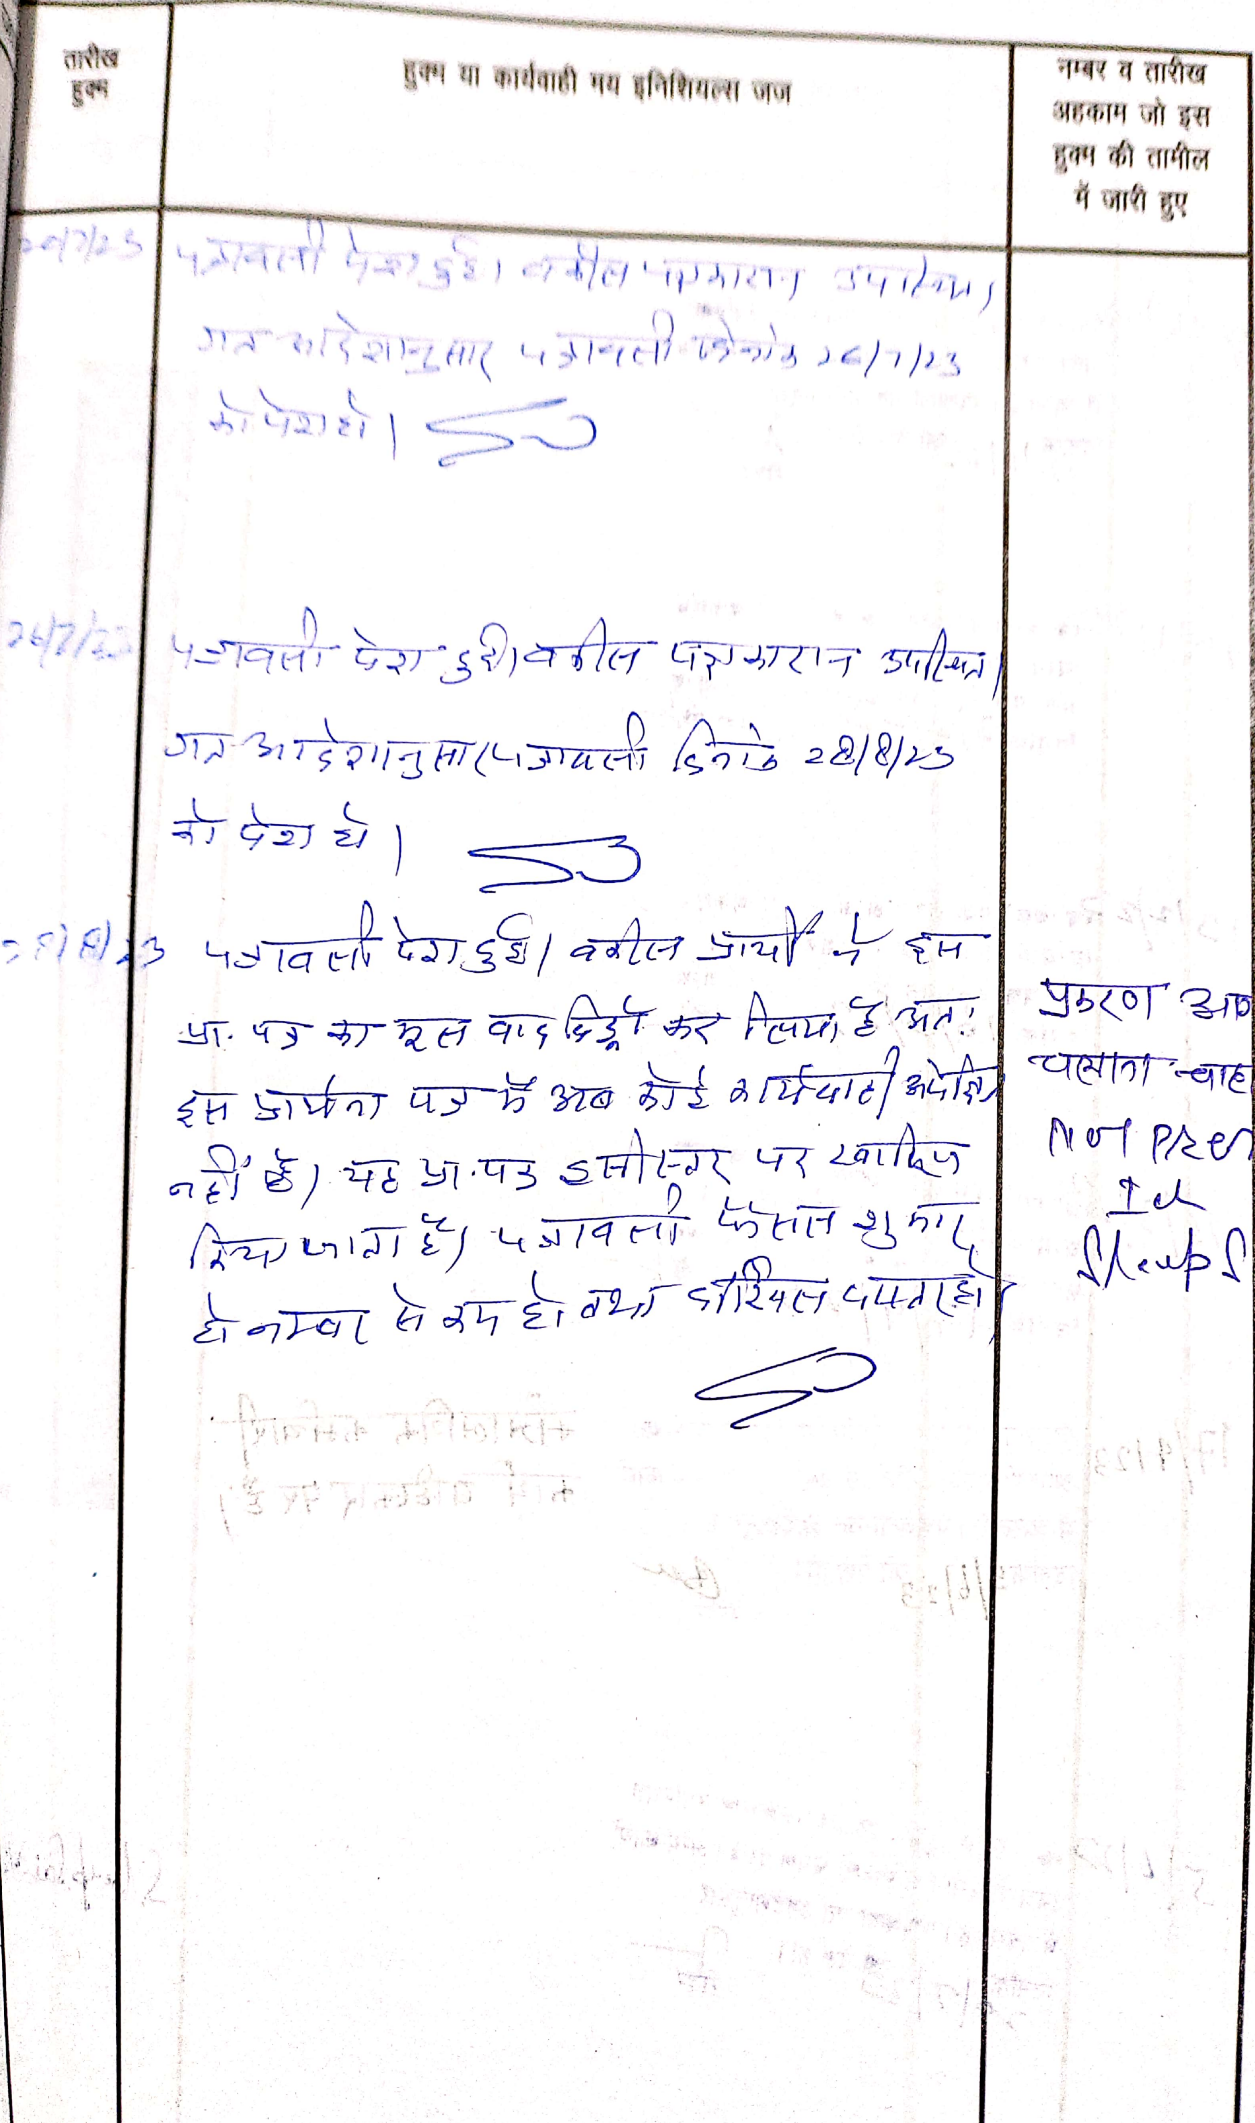 तारीख
हुक्म
हुक्म या कार्यवाही मय इनिशियल्स जज
नम्बर व तारीख
अहकाम जो इस
हुक्म की तामील
में जारी हुए
20/7/23 पत्रावली पेश हुई। वकील पक्षकारान उपस्थित।
गत आदेशानुसार पत्रावली दिनांक 26/7/23
को पेश हो।
26/7/23 पत्रावली पेश हुई। वकील पक्षकारान उपस्थित।
गत आदेशानुसार पत्रावली दिनांक 28/8/23
को पेश हो।
28/8/23 पत्रावली पेश हुई। वकील प्रार्थी ने इस
प्रा. पत्र का मूल वाद विड्रो कर लिया है अत:
इस प्रार्थना पत्र में अब कोई कार्यवाही अपेक्षित
नहीं है। यह प्रा. पत्र इसी स्तर पर खारिज
किया जाता है। पत्रावली फैसल शुमार
हो नम्बर से कम हो तथा दाखिल दफ्तर हो।
प्रकरण आगे
चलाना चाह
Not Pres